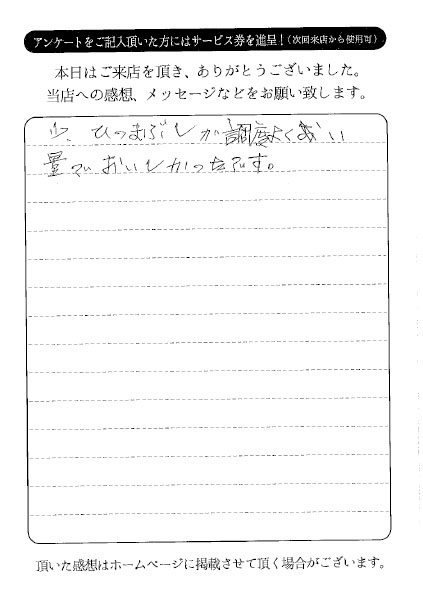 アンケートをご記入頂いた方にはサービス券を進呈!(次回来店から使用可)
本日はご来店を頂き、ありがとうございました。
当店への感想、メッセージなどをお願い致します。
ひつまぶしが調度よくおい
量でおいしかったです。
頂いた感想はホームページに掲載させて頂く場合がございます。